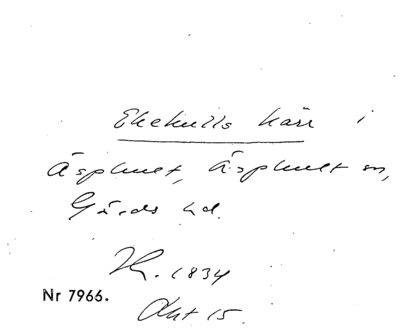 Ekekulls kärr i
Äsphult, Äsphult sn,
Gärds hd.
Th. 1834
Nr 7966.
Akt 15.